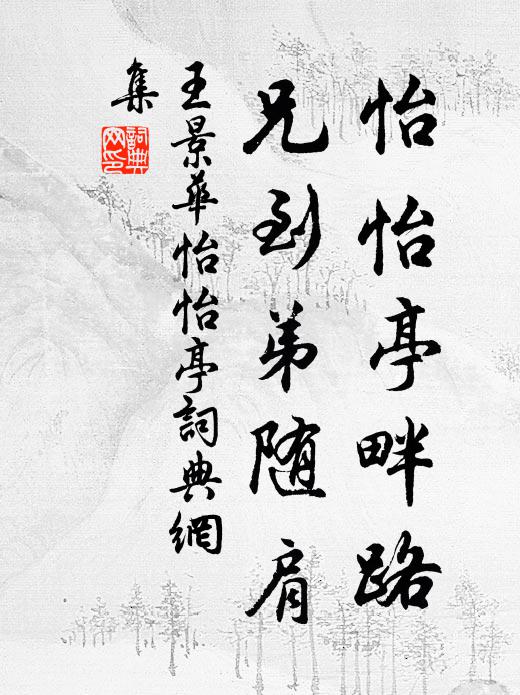 怡怡亭畔路
兄到弟随肩
王景華怡怡亭詞典網
集
詞典网印